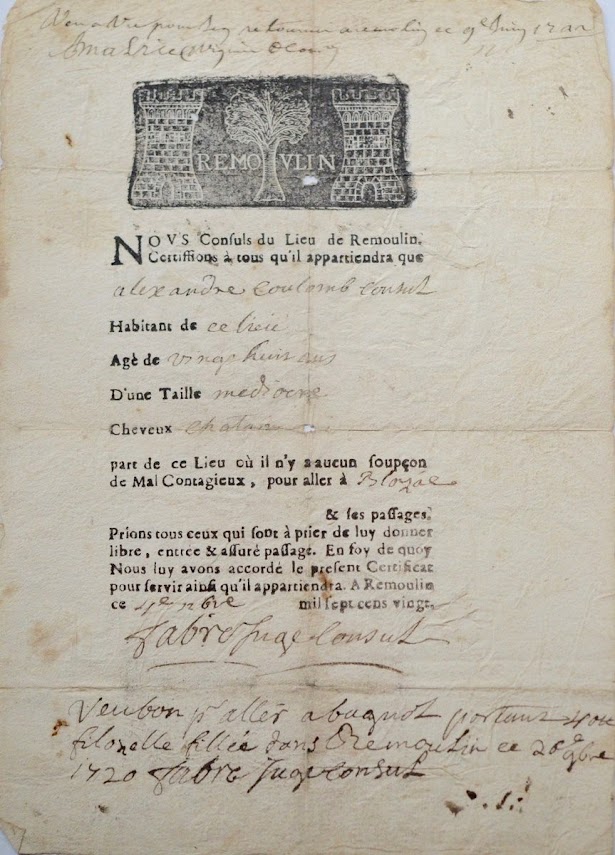 pour retourner a remolin ce 9e
REMOVLIN
NOVS Consuls du Lieu de Remoulin,
Certiffions à tous qu'il appartiendra que
alexandre Coulomb Consul
Habitant de ce lieu
Agé de vingt huit ans
D'une Taille mediocre
Cheveux chatan
part de ce Lieu où il n'y a aucun soupçon
de Mal Contagieux, pour aller à Blozac
& ses passages,
Prions tous ceux qui sont à prier de luy donner
libre, entrée & assuré passage. En foy de quoy
Nous luy avons accordé le present Certificat
pour servir ainsi qu'il appartiendra. A Remoulin
ce mil sept cens vingt.
fabre Juge Consul
Veu bon pr aller a portant
filozelle fillée dans Remoulin ce 26e
1720 fabre Juge Consul